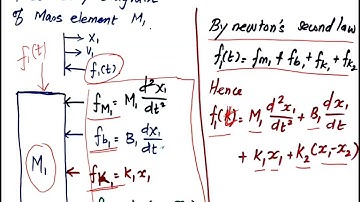 of Mass element M₁.
x₁
v₁
f₁(t)
f₁(t)
M₁
f_M₁ = M₁ d²x₁/dt²
f_b₁ = B₁ dx₁/dt
f_K₁ = K₁x₁
By newton's second law
f₁(t) = f_m₁ + f_b₁ + f_k₁ + f_k₂
Hence
f₁(t) = M₁ d²x₁/dt² + B₁ dx₁/dt
+ K₁x₁ + K₂(x₁-x₂)